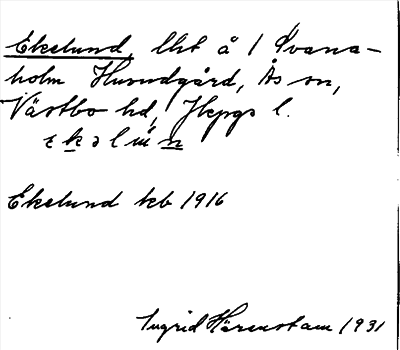 Ekelund, lht å 1 Svana-
holm Huvudgård, Ås sn,
Västbo hd, Jkpgs l.
Ekelund kb 1916
Ingrid Härenstam 1931